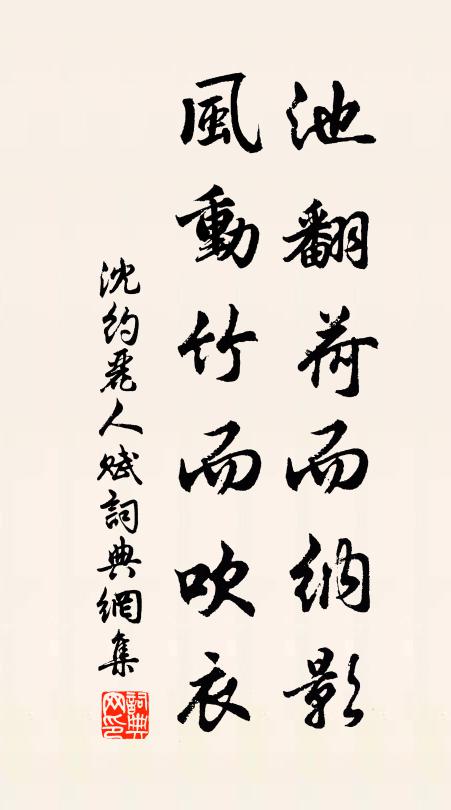 池翻荷而納影
風動竹而吹衣
沈約麗人賦詞典網集
詞典
网印